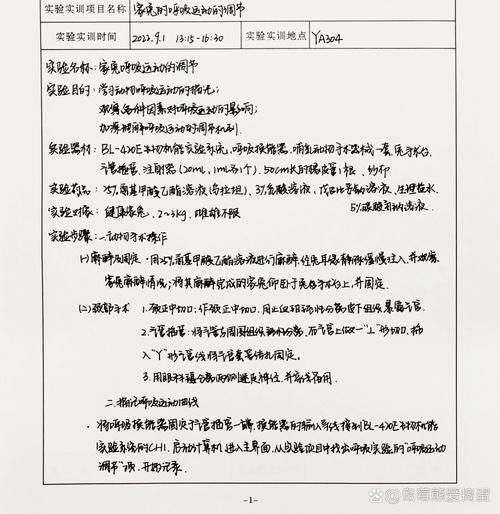 实验实训项目名称 家兔的呼吸运动的调节
实验实训时间 2022.9.1 13:15-16:30 实验实训地点 YA304
实验名称:家兔呼吸运动的调节
实验目的:学习动物呼吸运动的描记;
观察各种因素对呼吸运动的影响;
加深理解呼吸运动的调节机制.
实验器材:BL-420E生物机能实验系统,呼吸换能器,哺乳动物手术器械一套,兔手术台.
气管插管,注射器(20ml,1ml各1个),50cm长的橡皮管1根,纱布
实验药品:25%氨基甲酸乙酯溶液(乌拉坦),3%乳酸溶液,戊巴比妥钠溶液,生理盐水
5%碳酸氢钠溶液.
实验对象:健康家兔,2~3kg,雌雄不限
实验步骤:一.动物手术操作
(1)麻醉及固定:用25%氨基甲酸乙酯溶液进行麻醉,经兔耳缘静脉缓慢注入,并观察
家兔麻醉情况;将其麻醉完成的家兔仰卧于兔手术台上,并固定.
(2)颈部手术 1.颈正中切口:作颈正中切口,用止血钳钝性分离皮下组织,暴露气管.
2.气管插管:将气管与周围组织钝性分离,在气管上做一"⊥"形切口,插
入"Y"形气管插管套管结扎固定.
3.用眼科镊分离两侧迷走神经,并穿线备用.
二.描记呼吸运动曲线
将呼吸换能器固定于气管插管一端,换能器的输入导线接到BL-420E生物机能
实验系统的CH1.启动计算机,进入主界面,从实验项目中找出呼吸实验的"呼吸运动
调节"项,开始记录.
-1-
知乎 @岛莓熊爱蜂蜜